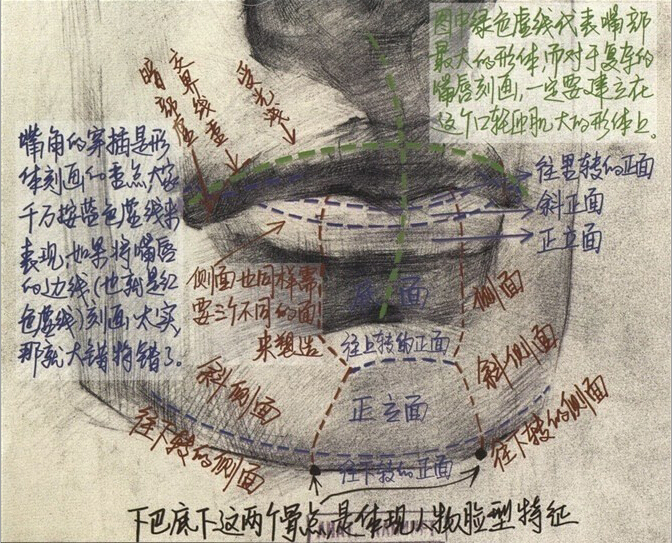 图中绿色虚线代表嘴部
最大的形体,而对于复杂的
嘴唇刻画,一定要建立在
这个口轮匝肌大的形体上。
受光浅
交界线重
暗部虚
嘴角的穿插是形
体刻画的重点大家
千万按蓝色虚线来
表现,如果将嘴唇
的边线(也就是红
色虚线)刻画太实,
那就大错特错了。
往里转的正面
斜正面
正立面
侧面也同样需
要三个不同的面
来塑造
面
侧面
往上转的正面
斜侧面
斜侧面
正立面
往下转的侧面
往下转的正面
往下转的侧面
下巴底下这两个骨点是体现人物脸型特征